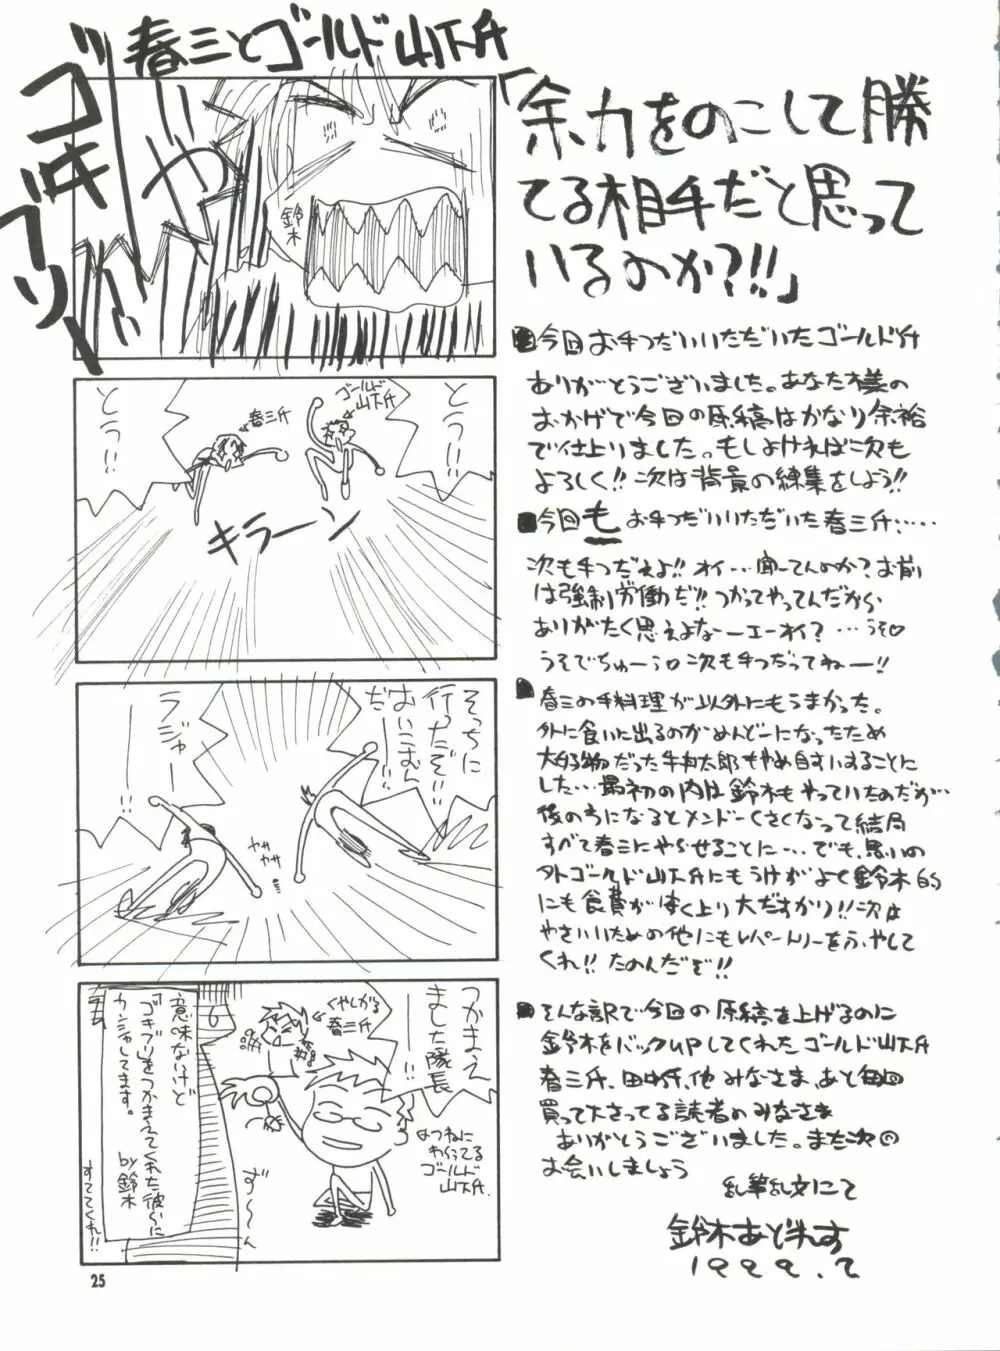 春三とゴールド山下斤
ゴキブリ
いや
鈴木
「余力をのこして勝
てる相手だと思って
いるのか?!!」
とうっ!!
←春三斤
ゴールド
山下斤
とうっ!!
キラーン
そっちに
行ったぞ!!
おいこむん
だ!!
ラジャー
ササササ
つかまえ
ました隊長
!!
くやしがる
春三斤
↑つねに
わらってる
ゴールド
山下斤.
ず〜〜ん
意味ないけど
『ゴキブリ』をつかまえてくれた彼らに
カンシャしてます。
by鈴木
すててくれ!!
今回お手つだいいただいたゴールド斤
ありがとうございました。あなた様の
おかげで今回の原稿はかなり余裕
で仕上りました。もしよければ次も
よろしく!!次は背景の練集をしよう!!
今回もお手つだいいただいた春三斤……
次も手つだえよ!!オイ…聞ーてんのか?お前
は強制労働だ!!つかってやってんだから
ありがたく思えよなーエーオイ?…うそ♡
うそでちゅーう♡次も手つだってねー!!
春三の手料理が以外にもうまかった。
外に食いに出るのがめんどーになったため
大好物だった牛丼太郎もやめ自すいすることに
した…最初の内は鈴木もやっていたのだが…
後の方になるとメンドーくさくなって結局
すべて春三にやらせることに…でも、思いの
外ゴールド山下斤にもうけがよく鈴木的
にも食費がすく上り大だすかり!!次は
やさいいための他にもレパートリーをふやして
くれ!!たのんだぞ!!
そんな訳で今回の原稿を上げるのに
鈴木をバックUPしてくれたゴールド山下斤
春三斤、田中斤、他みなさま、あと毎回
買って下さってる読者のみなさま
ありがとうございました。また次の
お会いしましょう
乱筆乱文にて
鈴木あどれす
1999.2
25